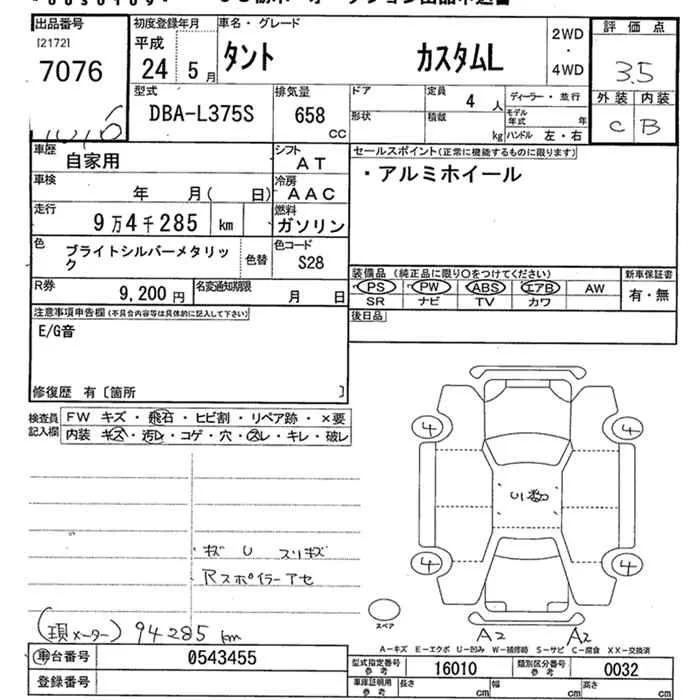 出品番号 初度登録年月 車名・グレード 2WD ・ 4WD 評価点
[2172]
7076 平成 24 5月 タント カスタムL 3.5
型式 排気量 ドア 定員 4人 ディーラー・並行 外装 内装
DBA-L375S 658 CC 形状 積載 kg モデル年式 年 C B
ハンドル 左・右
車歴 自家用 シフト AT セールスポイント(正常に機能するものに限ります)
車検 年 月( 日) 冷房 AAC ・アルミホイール
走行 9万4千285 km 燃料 ガソリン
色 ブライトシルバーメタリック 色替 色コード S28
装備品 (純正品に限り○をつけてください) 新車保証書
R券 9,200円 名変通知期限 月 日 PS PW ABS エアB AW 有・無
SR ナビ TV カワ
注意事項申告欄(不具合内容等は具体的に記入して下さい) 後日品
E/G音
修復歴 有〔箇所 〕
検査員記入欄 FW キズ・飛石・ヒビ割・リペア跡・×要
内装 キズ・汚レ・コゲ・穴・スレ・キレ・破レ
4 4
キズ U スリキズ
Rスポイラーアセ
4 4
スペア
A2 A2
(現メーター) 94285 km
A-キズ E-エクボ U-凹み W-補修跡 S-サビ C-腐食 XX-交換済
車台番号 0543455 型式指定番号 参考 16010 類別区分番号 参考 0032
登録番号 車庫証明用 参考 長さ cm 幅 cm 高さ cm